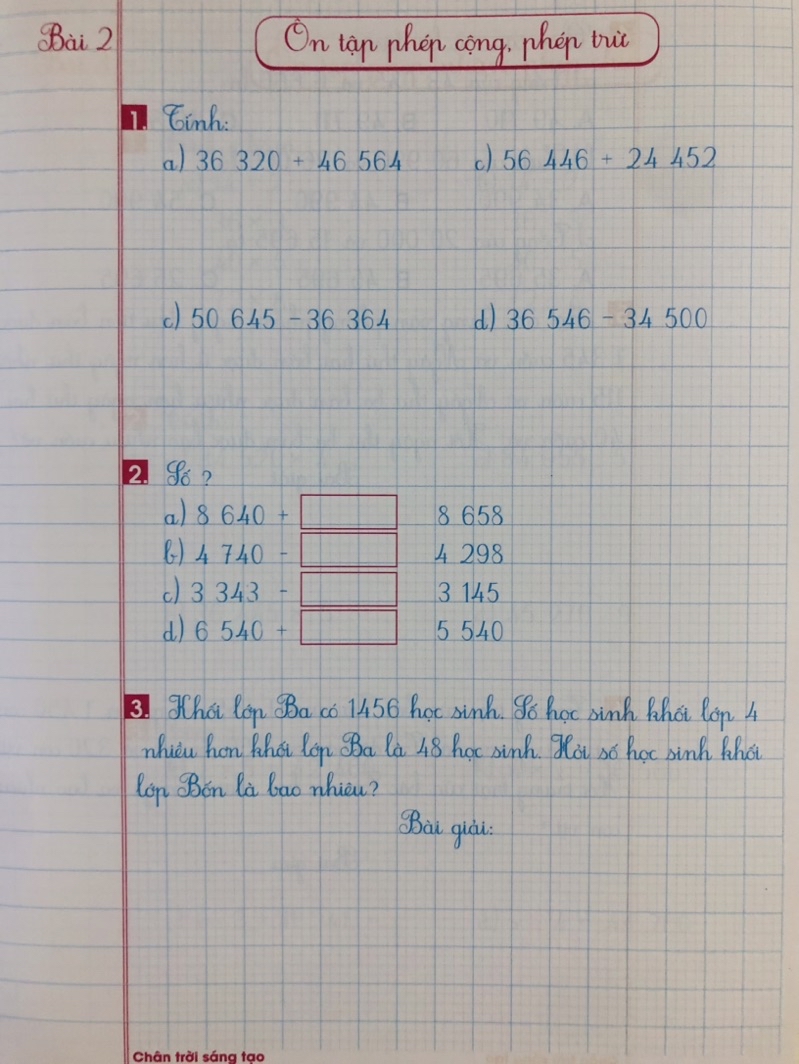 Bài 2
Ôn tập phép cộng, phép trừ
1. Tính:
a) 36 320 + 46 564 c) 56 446 + 24 452
c) 50 645 - 36 364 d) 36 546 - 34 500
2. Số ?
a) 8 640 + 8 658
b) 4 740 - 4 298
c) 3 343 - 3 145
d) 6 540 + 5 540
3. Khối lớp Ba có 1456 học sinh. Số học sinh khối lớp 4
nhiều hơn khối lớp Ba là 48 học sinh. Hỏi số học sinh khối
lớp Bốn là bao nhiêu?
Bài giải:
Chân trời sáng tạo